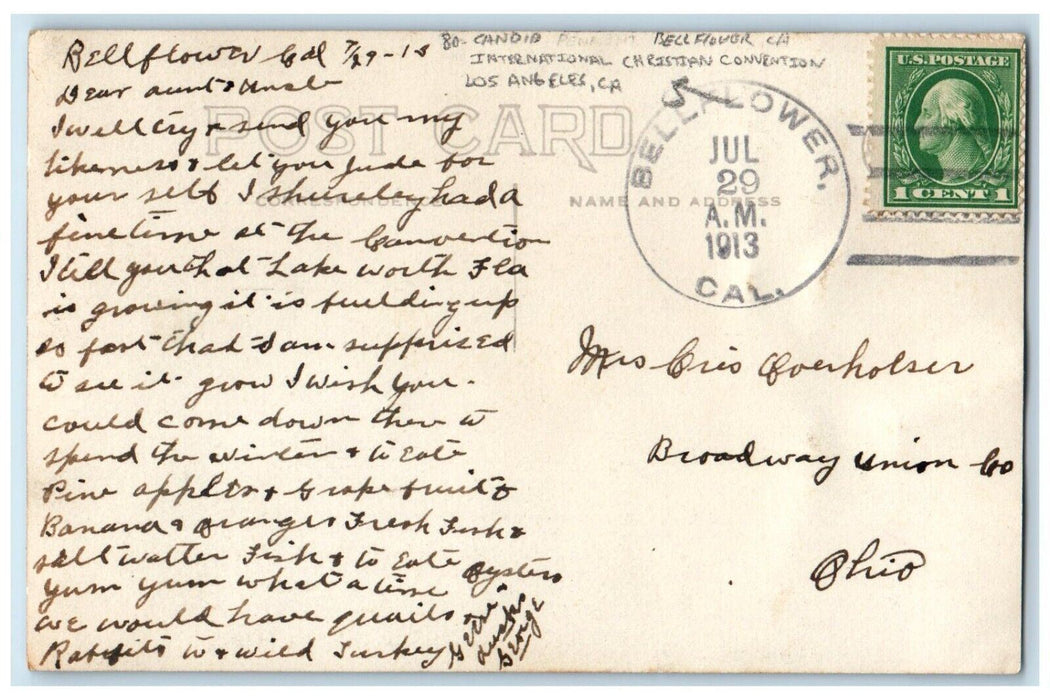 Bellflower Cal 7/29-13
Dear aunt & Uncle
I well try & send you my
likeness & let you Jude for
your self I shureley had a
fine time at the Convention
I till you that Lake worth Fla
is growing it is buelding up
so fast that I am supprised
to see it grow I wish you
could come down there to
spend the winter & to Eate
Pine apples & Grape fruit &
Banana & oranges Fresh Fish &
salt watter Fish & to Eate oysters
yum yum what a time
we would have quails &
Rabbits to & wild Turkey
& ducks
George
80- CANDID BELLFLOWER CA
INTERNATIONAL CHRISTIAN CONVENTION
LOS ANGELES, CA
POST CARD
CORRESPONDENCE
NAME AND ADDRESS
BELLFLOWER,
JUL
29
A.M.
1913
CAL.
U.S. POSTAGE
1 CENT 1
Mrs Cris Overholser
Broadway Union Co
Ohio